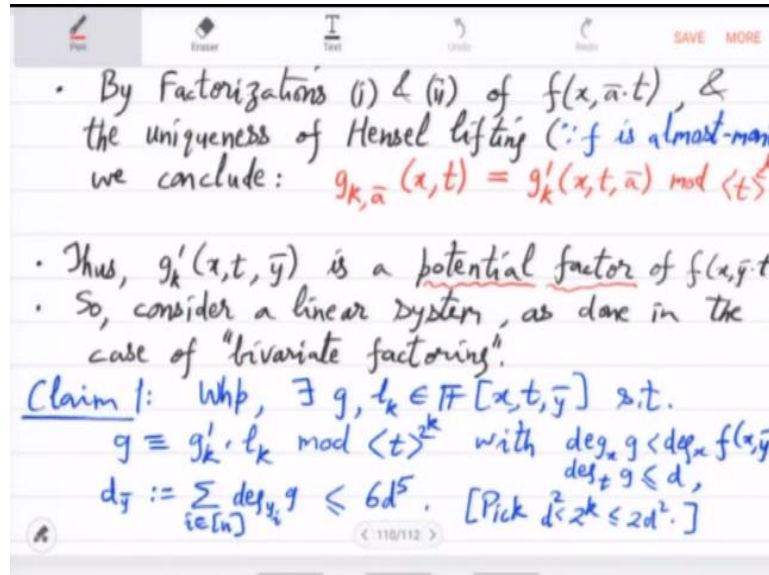 Pen Eraser Text Undo Redo SAVE MORE
· By Factorizations (i) & (ii) of f(x, ā·t), &
the uniqueness of Hensel lifting (∵ f is almost-mon
we conclude: g_{k,ā}(x,t) = g'_k(x,t,ā) mod <t>
· Thus, g'_k(x,t,ȳ) is a potential factor of f(x,ȳ·t
· So, consider a linear system, as done in the
case of "bivariate factoring".
Claim 1: Whp, ∃ g, l_k ∈ 𝔽[x,t,ȳ] s.t.
g ≡ g'_k · l_k mod <t>^{2^k} with deg_x g < deg_x f(x,ȳ
deg_t g ≤ d,
d_ȳ := Σ_{i∈[n]} deg_{y_i} g ≤ 6d^5. [Pick d^2 < 2^k ≤ 2d^2.]
< 110/112 >